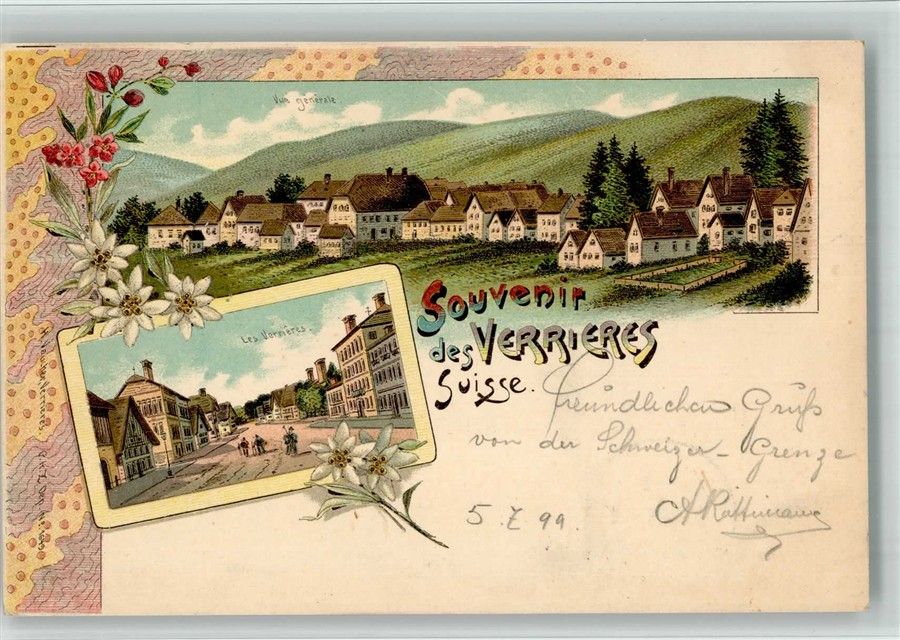 Vue générale
Les Verrières.
Souvenir
des VERRIERES
Suisse.
Freundlichen Gruß
von der Schweizer-Grenze
5. 7. 99.